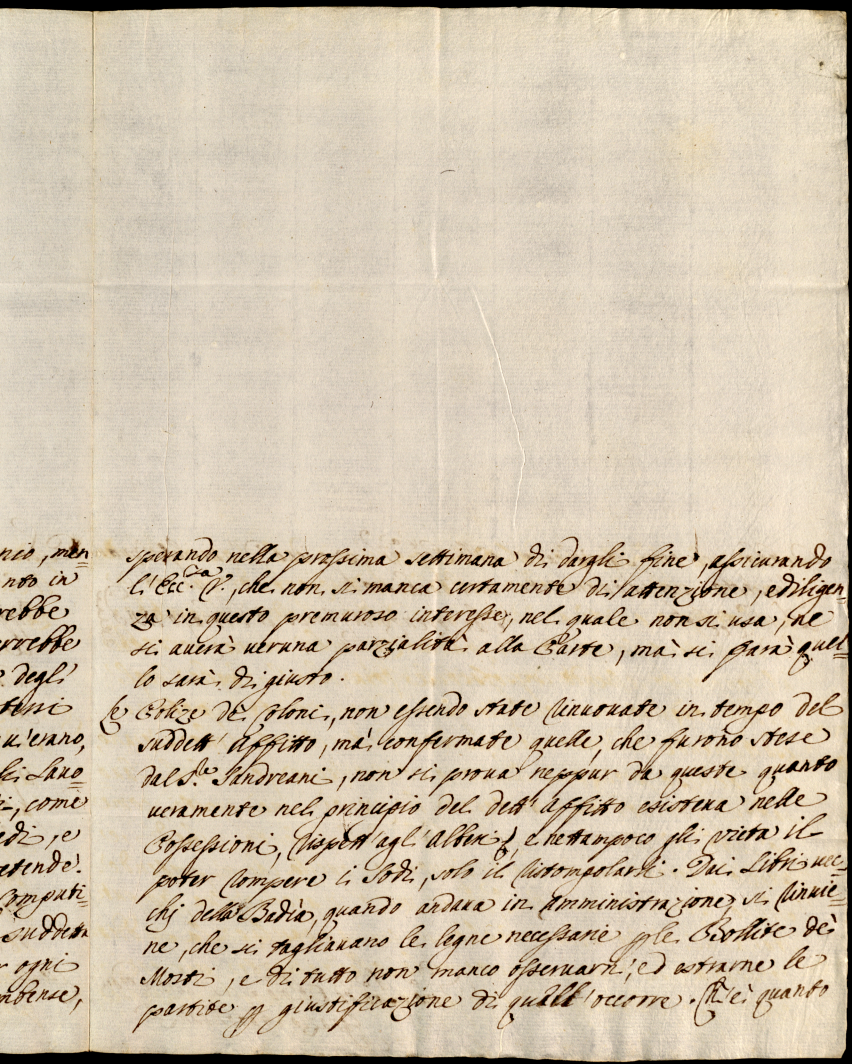 ncio, men=
nto in
rebbe
errebbe
degli
teni
u'erano,
li Lauo=
come
edi, e
etende.
Computi=
suddetta
r ogni
mbense,
sperando nella prossima settimana di dargli fine, assicurando
l'Ecc.za V., che non si manca certamente di attenzione, e diligen=
za in questo premuroso interesse, nel quale non si usa, ne
si auerà ueruna parzialità alla Parte, mà si farà quel=
lo sarà di giusto.
Le Polize de Coloni, non essendo state rinuouate in tempo del
suddett'Affitto, mà confermate quelle, che furono stese
dal S.re Sandreani, non si proua neppur da queste quanto
ueramente nel principio del dett'Affitto esisteua nelle
Possessioni, rispett'agl'Alberi, e nettampoco gli uieta il
poter rompere i sodi, solo il ristompolarli. Dai Libri uec=
chj della Badìa, quando andaua in amministrazione, si rinuie=
ne, che si tagliauano le legne necessarie p le Bollite dei
Mosti, e di tutto non manco osseruarni, ed estrarne le
partite p giustificazione di quall'occorre. Ch'è quanto